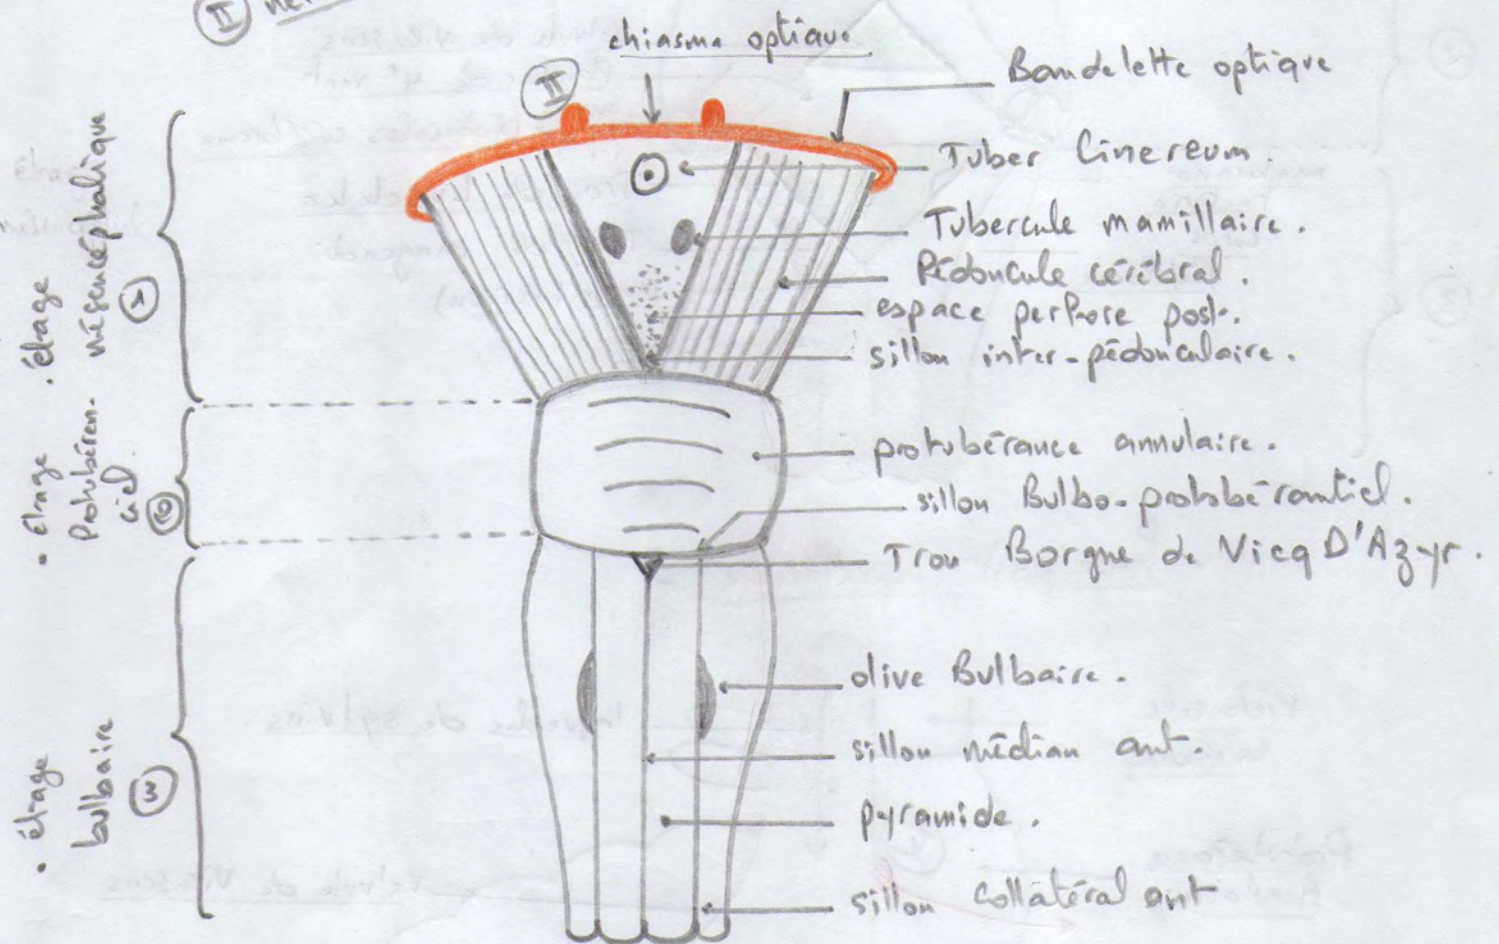 II
chiasma optique
II
Bandelette optique
Tuber Cinereum.
Tubercule mamillaire.
Pédoncule cérébral.
espace perfore post.
sillon inter-pédonculaire.
protubérance annulaire.
sillon Bulbo-protubérantiel.
Trou Borgne de Vicq D'Azyr.
olive Bulbaire.
sillon médian ant.
pyramide.
sillon Collatéral ant
. étage
mésencéphalique
1
. étage
Protubéren-
ciel
2
. étage
bulbaire
3